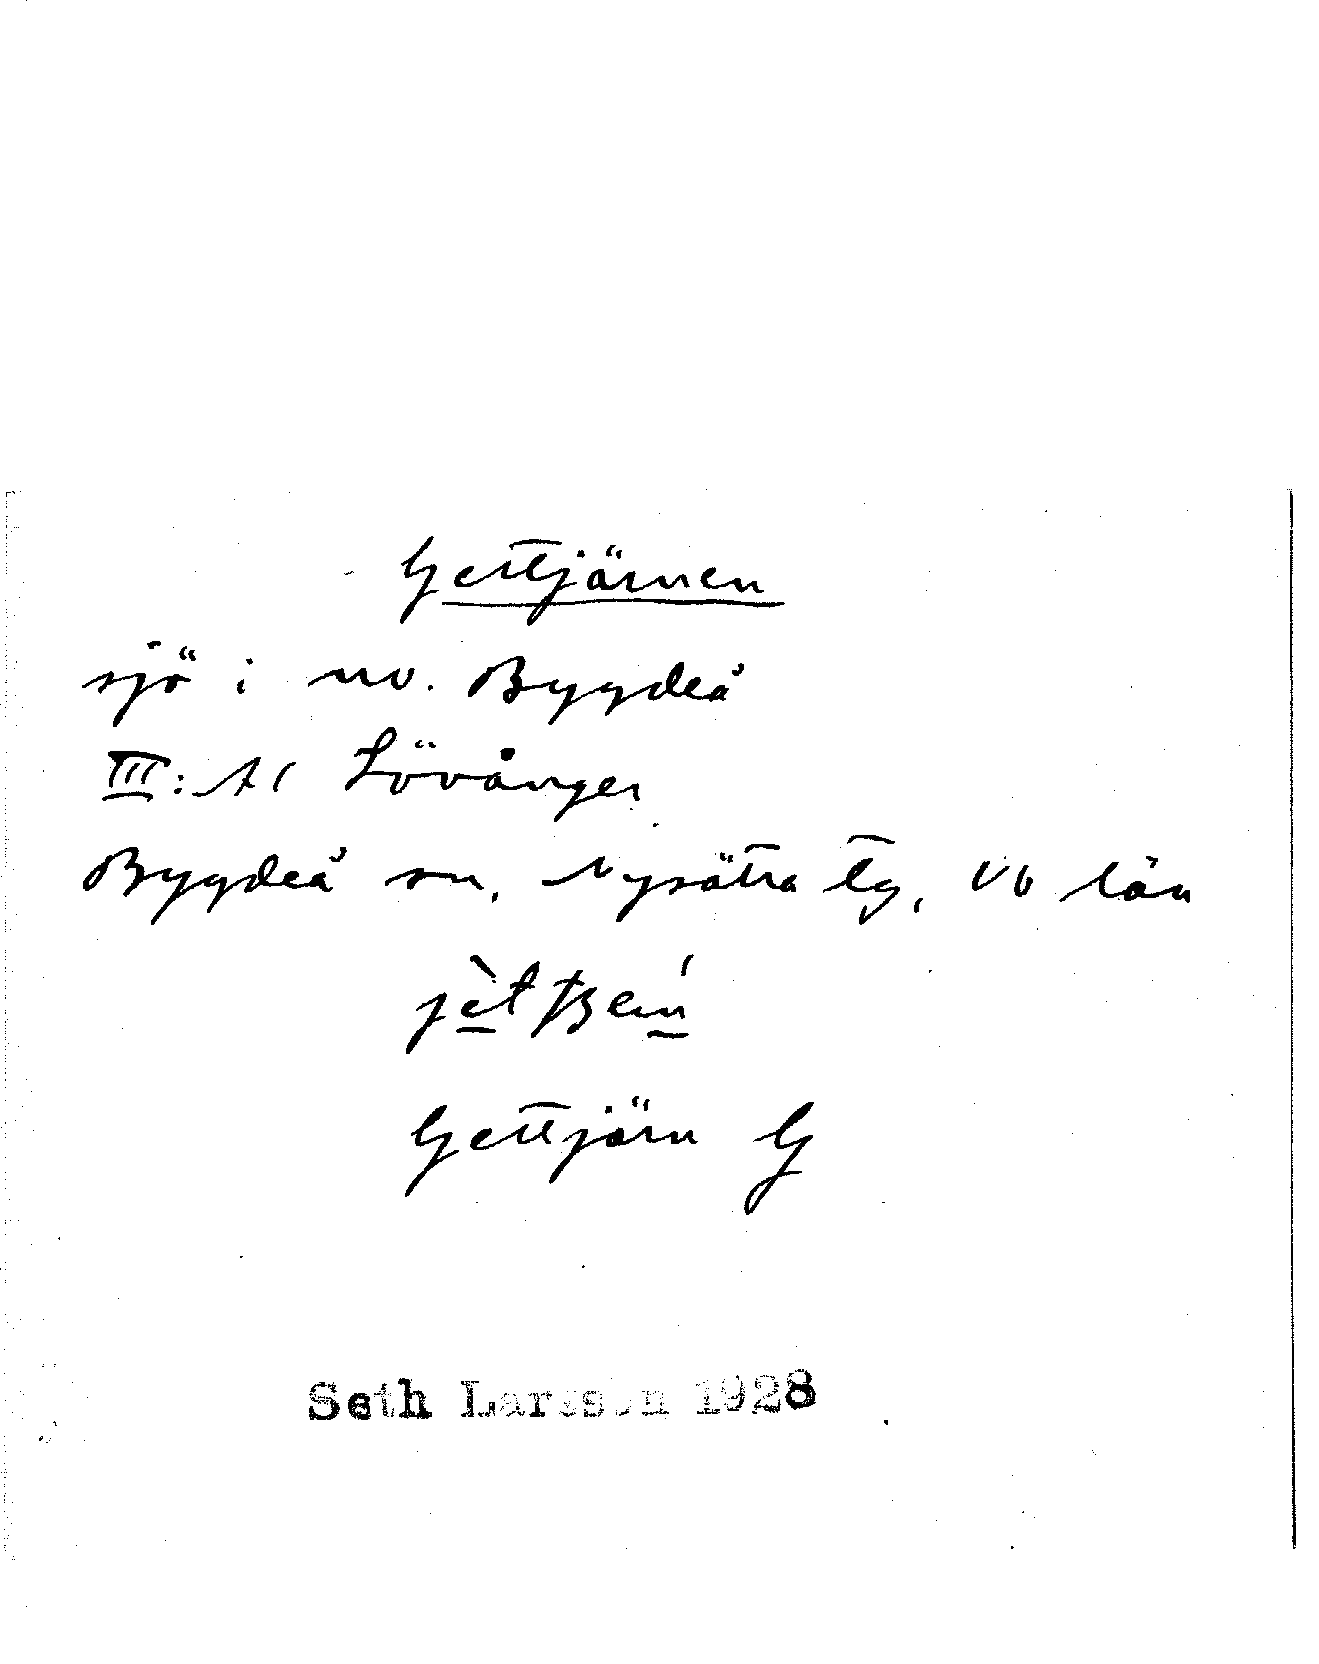 Gettjärnen
sjö i nv. Bygdeå
III: A1 Lövånger
Bygdeå sn, Nysätra tg, Vb län
Gettjärn G
Seth Larsson 1928